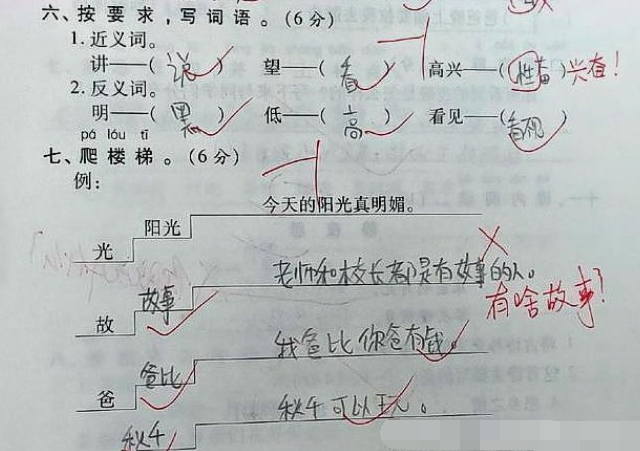 六、按要求，写词语。(6分)
1.近义词。
讲——(说) 望——(看) 高兴——(性奋) 兴奋！
2.反义词。
明——(黑) 低——(高) 看见——(看砚)
pá lóu tī
七、爬楼梯。(6分)
例：
今天的阳光真明媚。
阳光
光
老师和校长都是有故事的人。
故事
故
有啥故事？
我爸比你爸有钱。
爸比
爸
秋千可以玩。
秋千